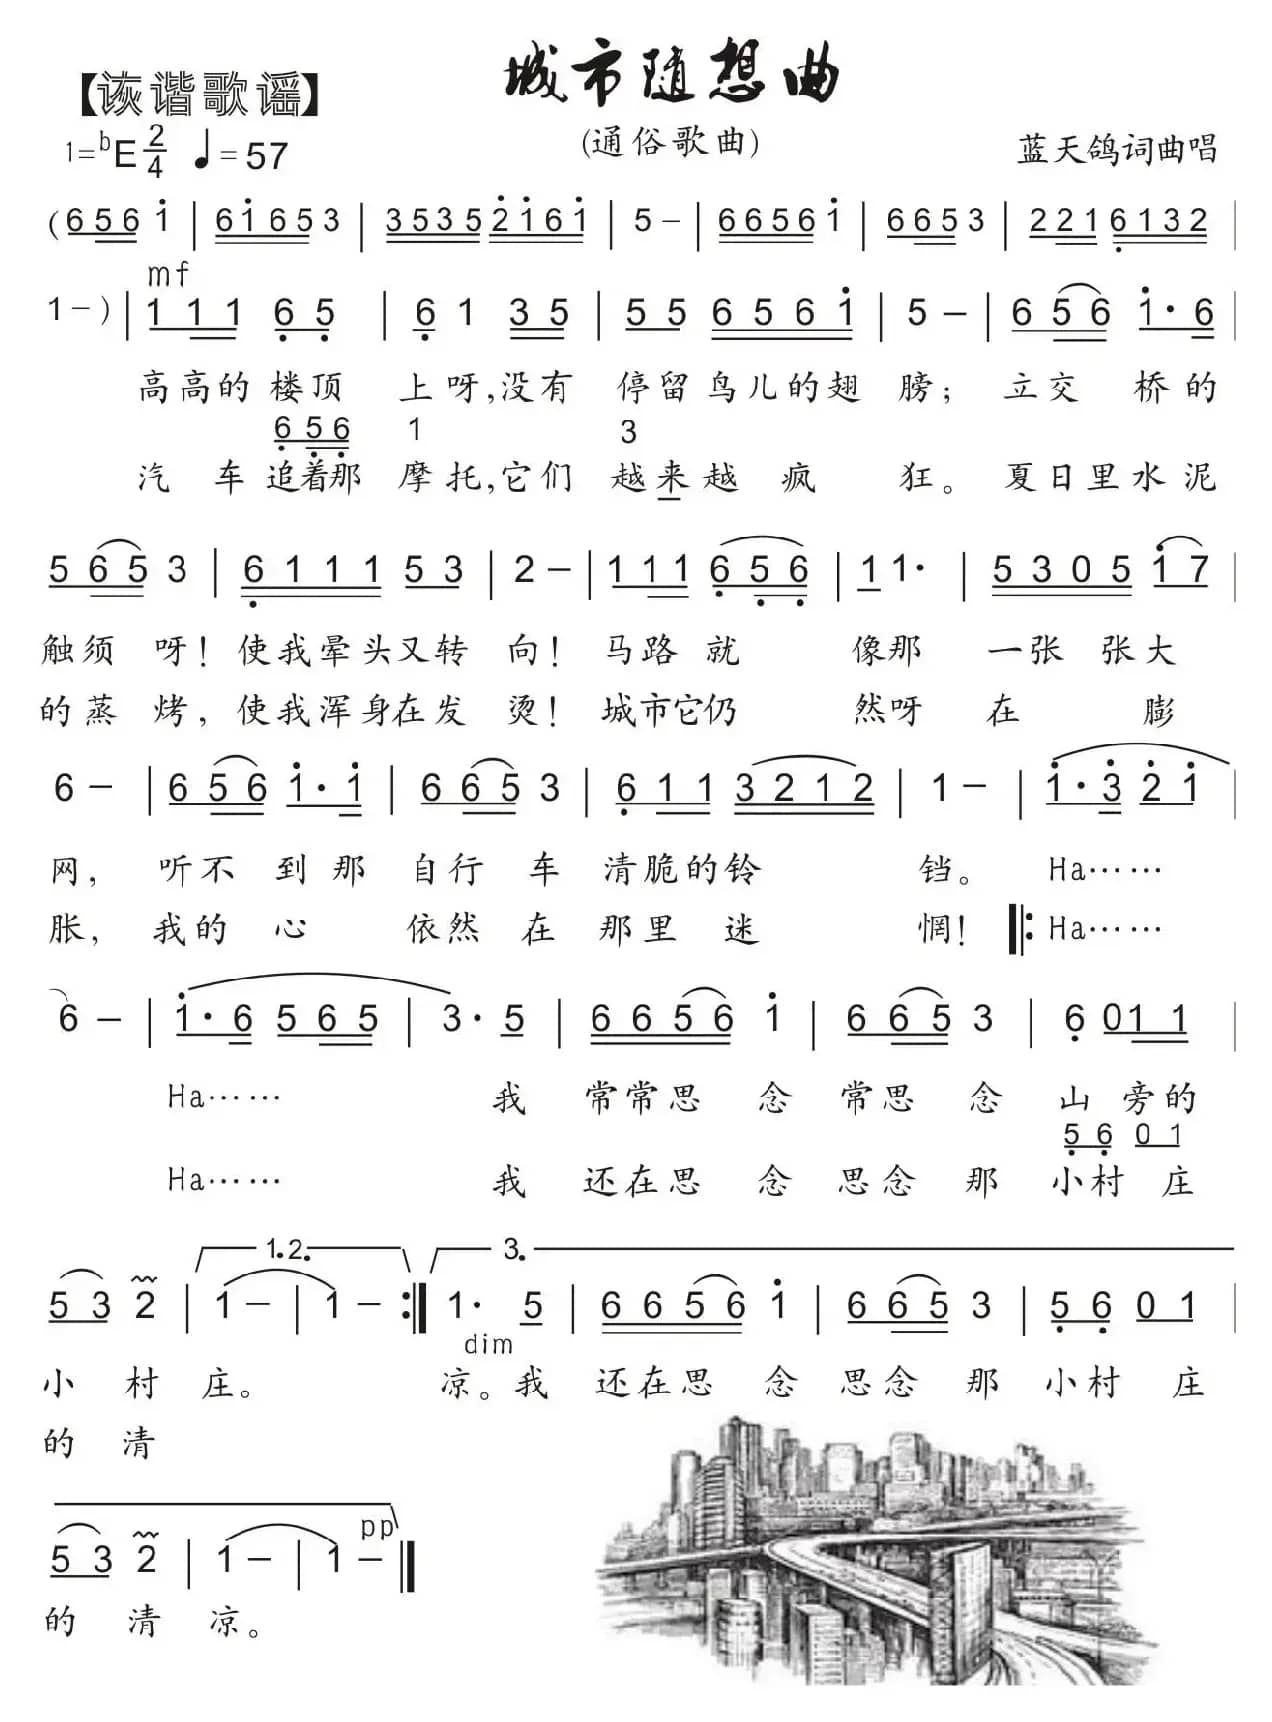 城市随想曲
【诙谐歌谣】
(通俗歌曲)
1=ᵇE 2/4 ♩=57
蓝天鸽词曲唱
(6 5 6 i | 6 i 6 5 3 | 3 5 3 5 2̇ i 6 i | 5 − | 6 6 5 6 i | 6 6 5 3 | 2 2 1 6̣ 1 3 2 |
mf
1 − ) | 1 1 1 6̣ 5̣ | 6̣ 1 3 5 | 5 5 6 5 6 i | 5 − | 6 5 6 i · 6 |
高高的 楼顶 上呀,没有 停留鸟儿的翅 膀; 立交 桥的
6̣ 5̣ 6̣ 1 3
汽 车 追着那 摩托,它们 越来越 疯 狂。 夏日里水泥
5 6 5 3 | 6̣ 1 1 1 5 3 | 2 − | 1 1 1 6̣ 5̣ 6̣ | 1 1 · | 5 3 0 5 i 7 |
触须 呀! 使我晕头又转 向! 马路 就 像那 一张 张大
的蒸 烤, 使我浑身在发 烫! 城市它仍 然呀 在 膨
6 − | 6 5 6 i · i | 6 6 5 3 | 6̣ 1 1 3 2 1 2 | 1 − | i · 3̇ 2̇ i |
网, 听不 到那 自行 车 清脆的铃 铛。 Ha……
胀, 我的 心 依然 在 那里 迷 惘! ‖: Ha……
6 − | i · 6 5 6 5 | 3 · 5 | 6 6 5 6 i | 6 6 5 3 | 6̣ 0 1 1 |
Ha…… 我 常常思 念 常思 念 山 旁的
5̣ 6̣ 0 1
Ha…… 我 还在思 念 思念 那 小村 庄
1. 2. 3.
5 3 2 | 1 − | 1 − :‖ 1 · 5 | 6 6 5 6 i | 6 6 5 3 | 5̣ 6̣ 0 1 |
dim
小 村 庄。 凉。我 还在思 念 思念 那 小村 庄
的 清
pp
5 3 2 | 1 − | 1 − ‖
的 清 凉。